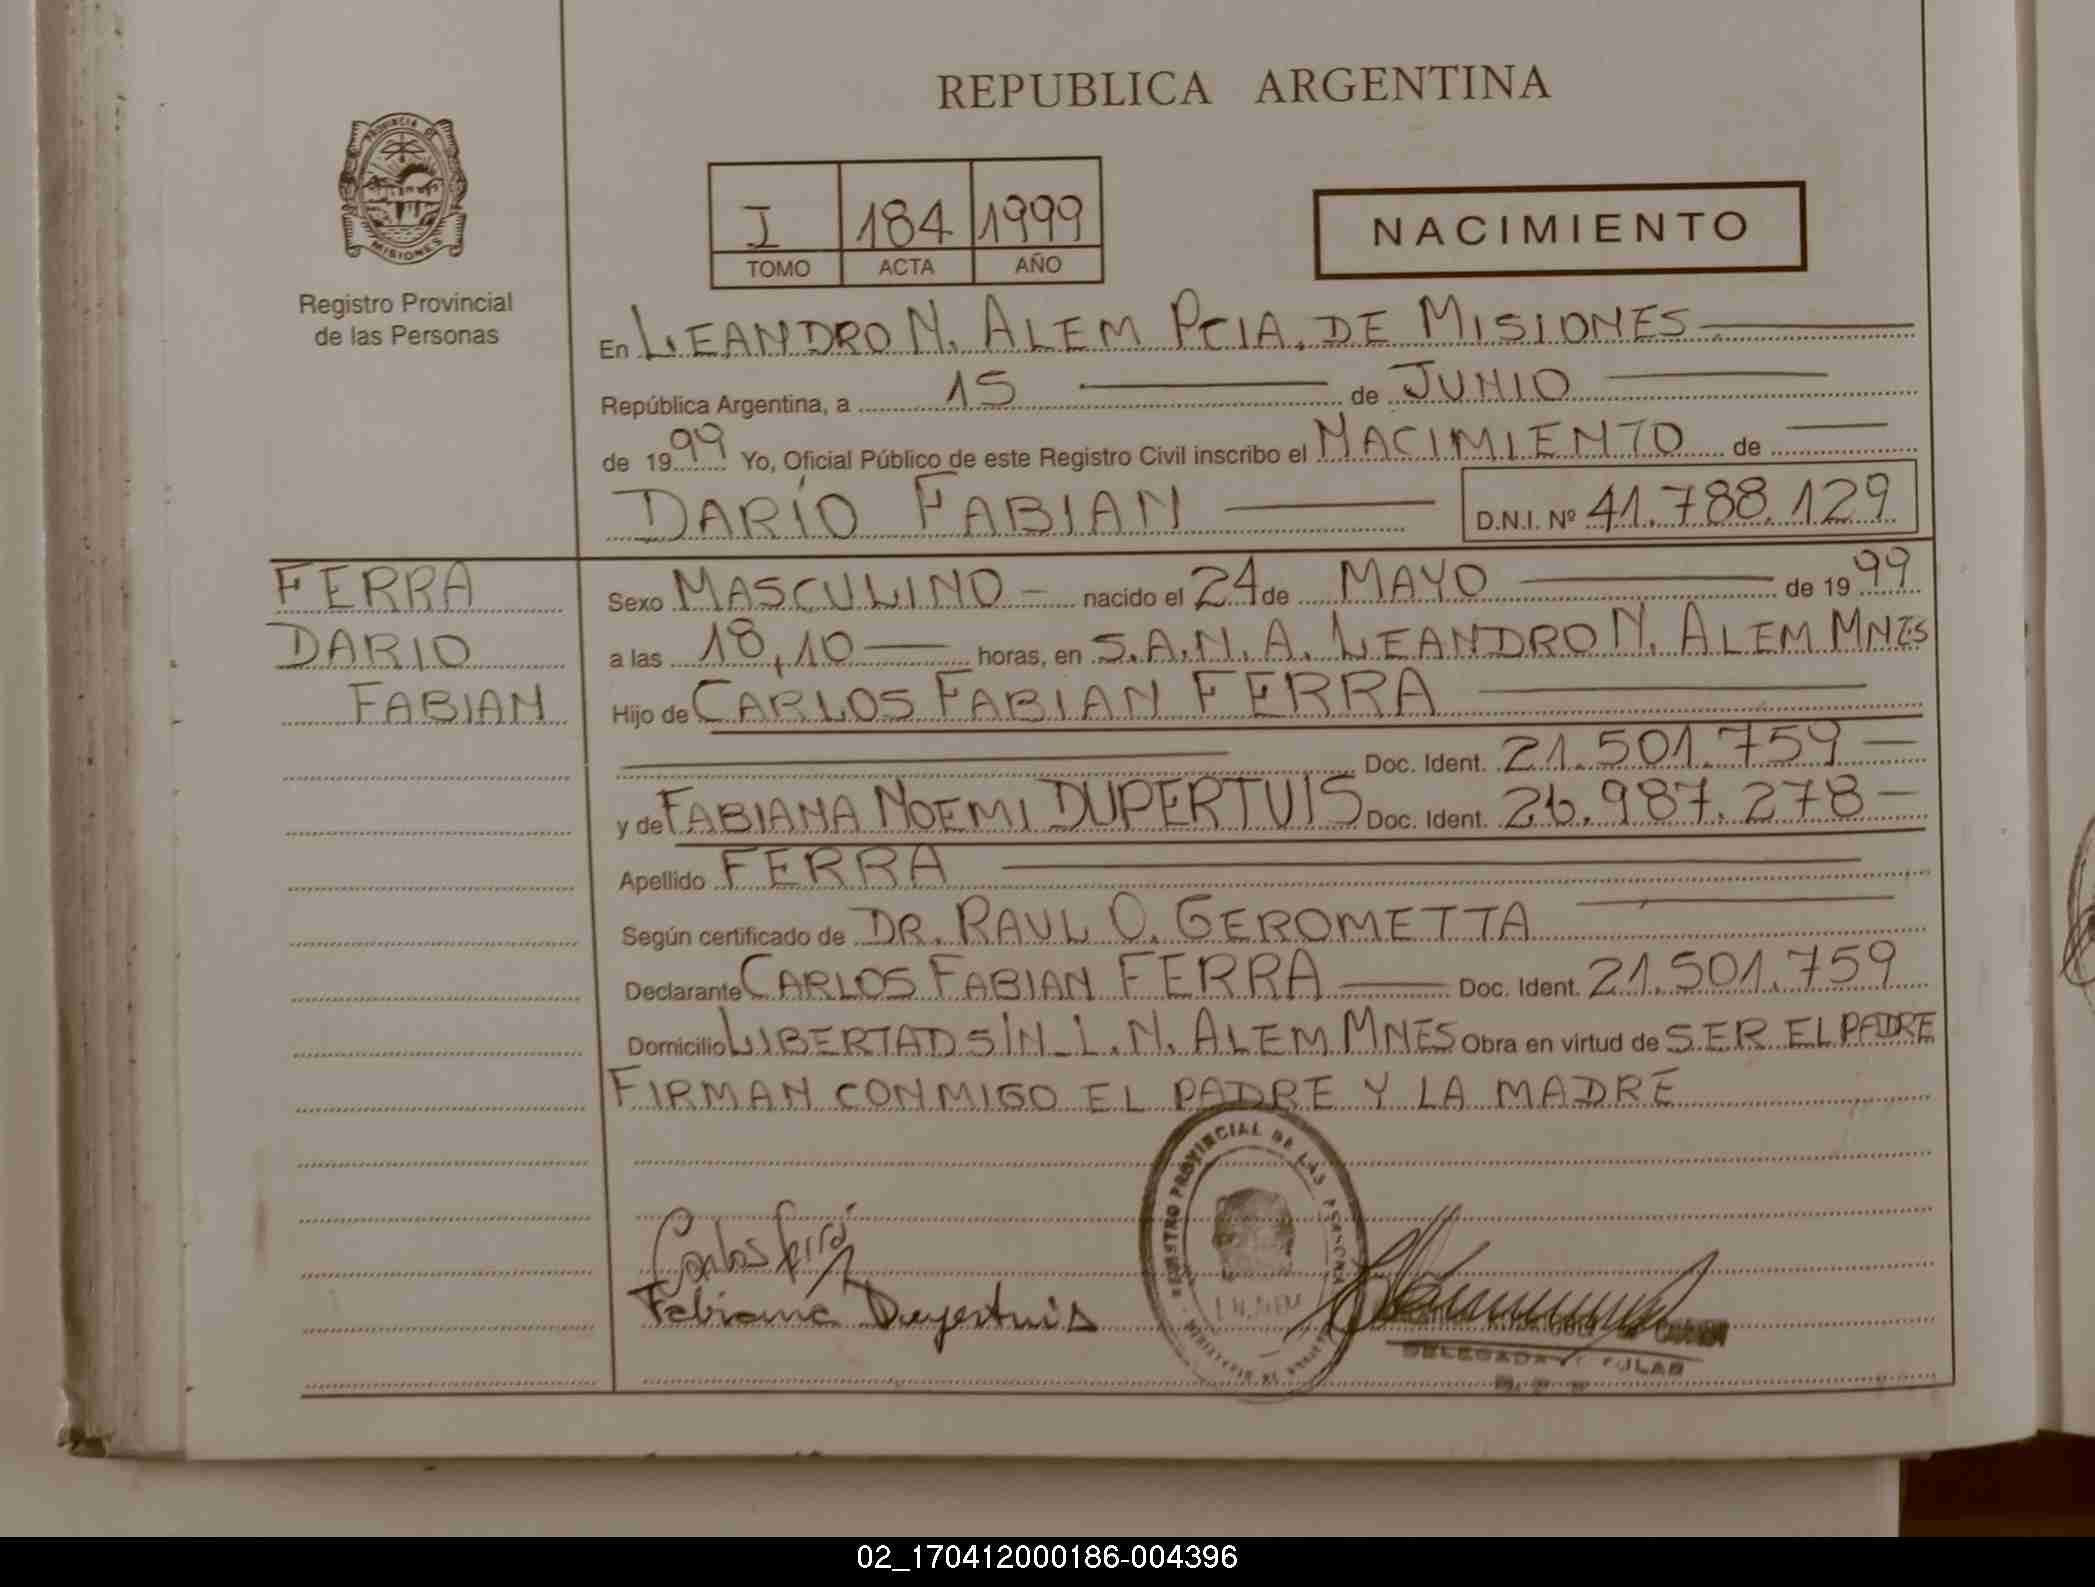 REPUBLICA ARGENTINA
PROVINCIA DE
MISIONES
Registro Provincial
de las Personas
I 184 1999
TOMO ACTA AÑO
NACIMIENTO
En LEANDRO N. ALEM PCIA. DE MISIONES
República Argentina, a 15 de JUNIO
de 1999 Yo, Oficial Público de este Registro Civil inscribo el NACIMIENTO de
DARÍO FABIAN D.N.I. Nº 41.788.129
FERRA
DARIO
FABIAN
Sexo MASCULINO - nacido el 24 de MAYO de 1999
a las 18,10 horas, en S.A.N.A. LEANDRO N. ALEM MNES
Hijo de CARLOS FABIAN FERRA
Doc. Ident. 21.501.759
y de FABIANA NOEMI DUPERTUIS Doc. Ident. 26.987.278
Apellido FERRA
Según certificado de DR. RAUL O. GEROMETTA
Declarante CARLOS FABIAN FERRA Doc. Ident. 21.501.759
Domicilio LIBERTAD S/N_L.N. ALEM MNES Obra en virtud de SER EL PADRE
FIRMAN CONMIGO EL PADRE Y LA MADRE
REGISTRO PROVINCIAL DE LAS PERSONAS
Carlos Ferrá
Fabiana Dupertuis
DELEGADA TITULAR
02_170412000186-004396